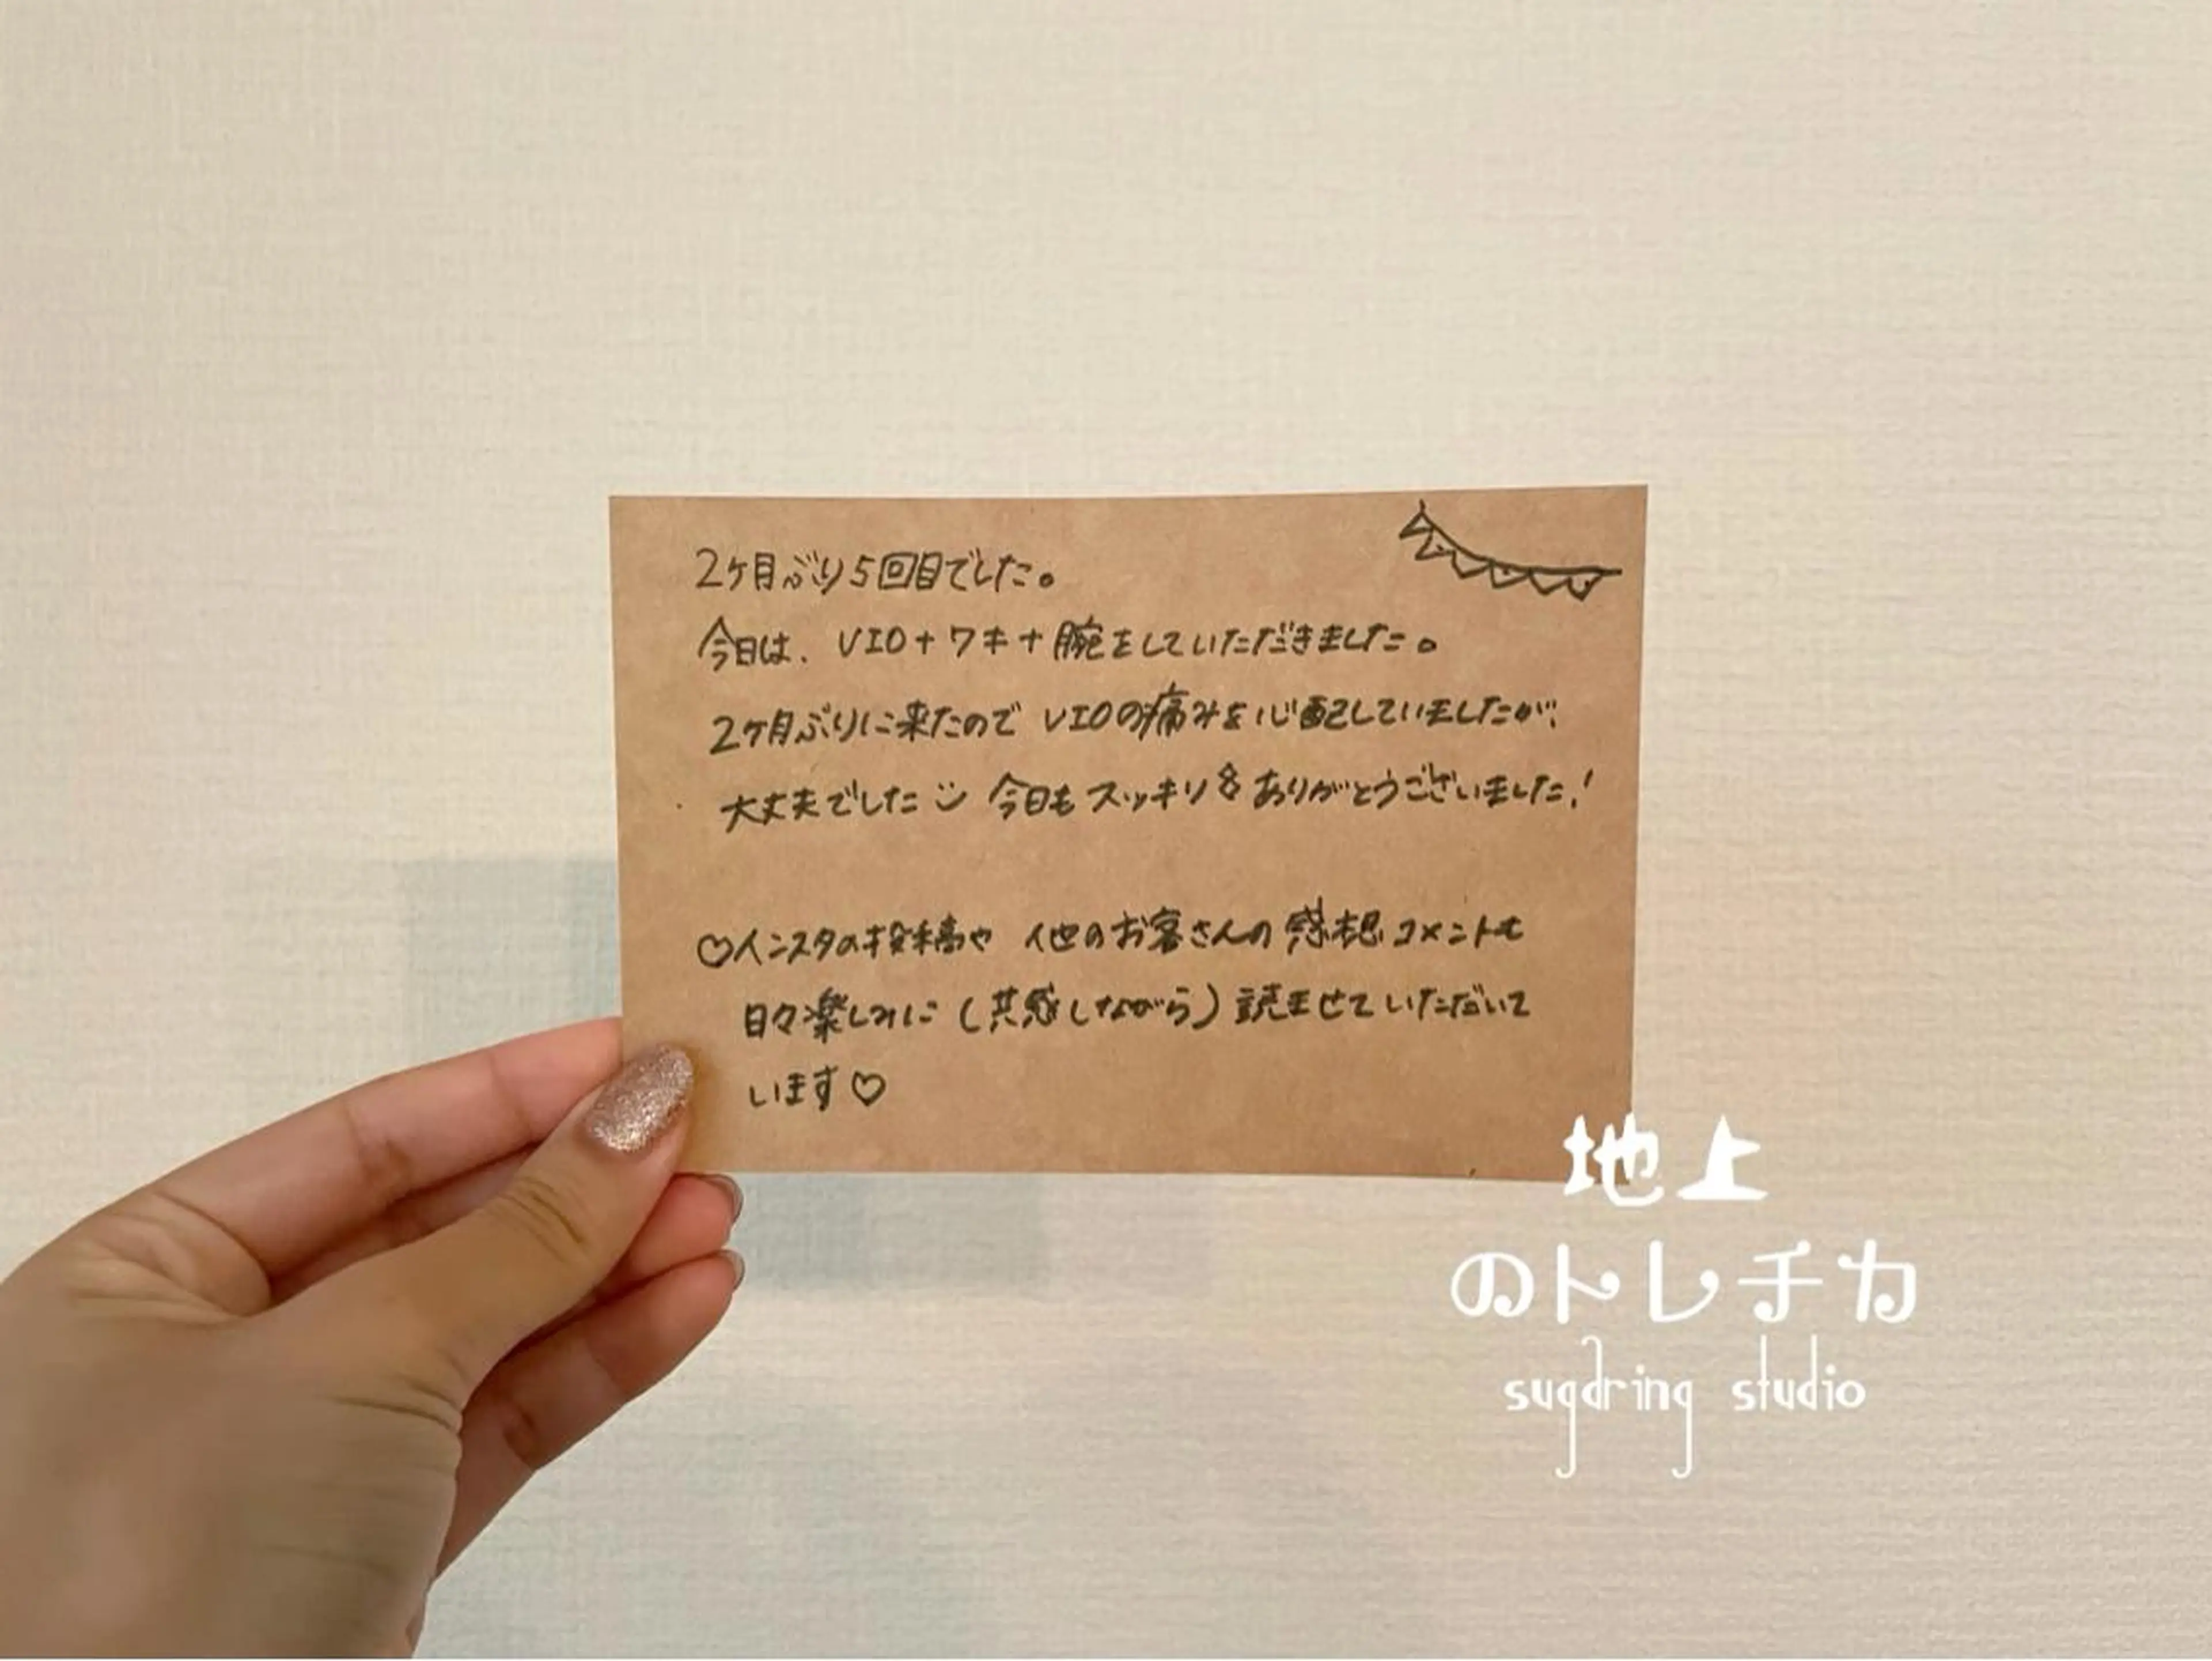 2ケ月ぶり5回目でした。
今日は、VIO+ワキ+腕をしていただきました。
2ケ月ぶりに来たので VIOの痛みを心配していましたが、
大丈夫でした 今日もスッキリ ありがとうございました!
♡インスタの投稿や 他のお客さんの感想コメントも
日々楽しみに(共感しながら)読ませていただいて
います♡
地上
のトレチカ
sugaring studio